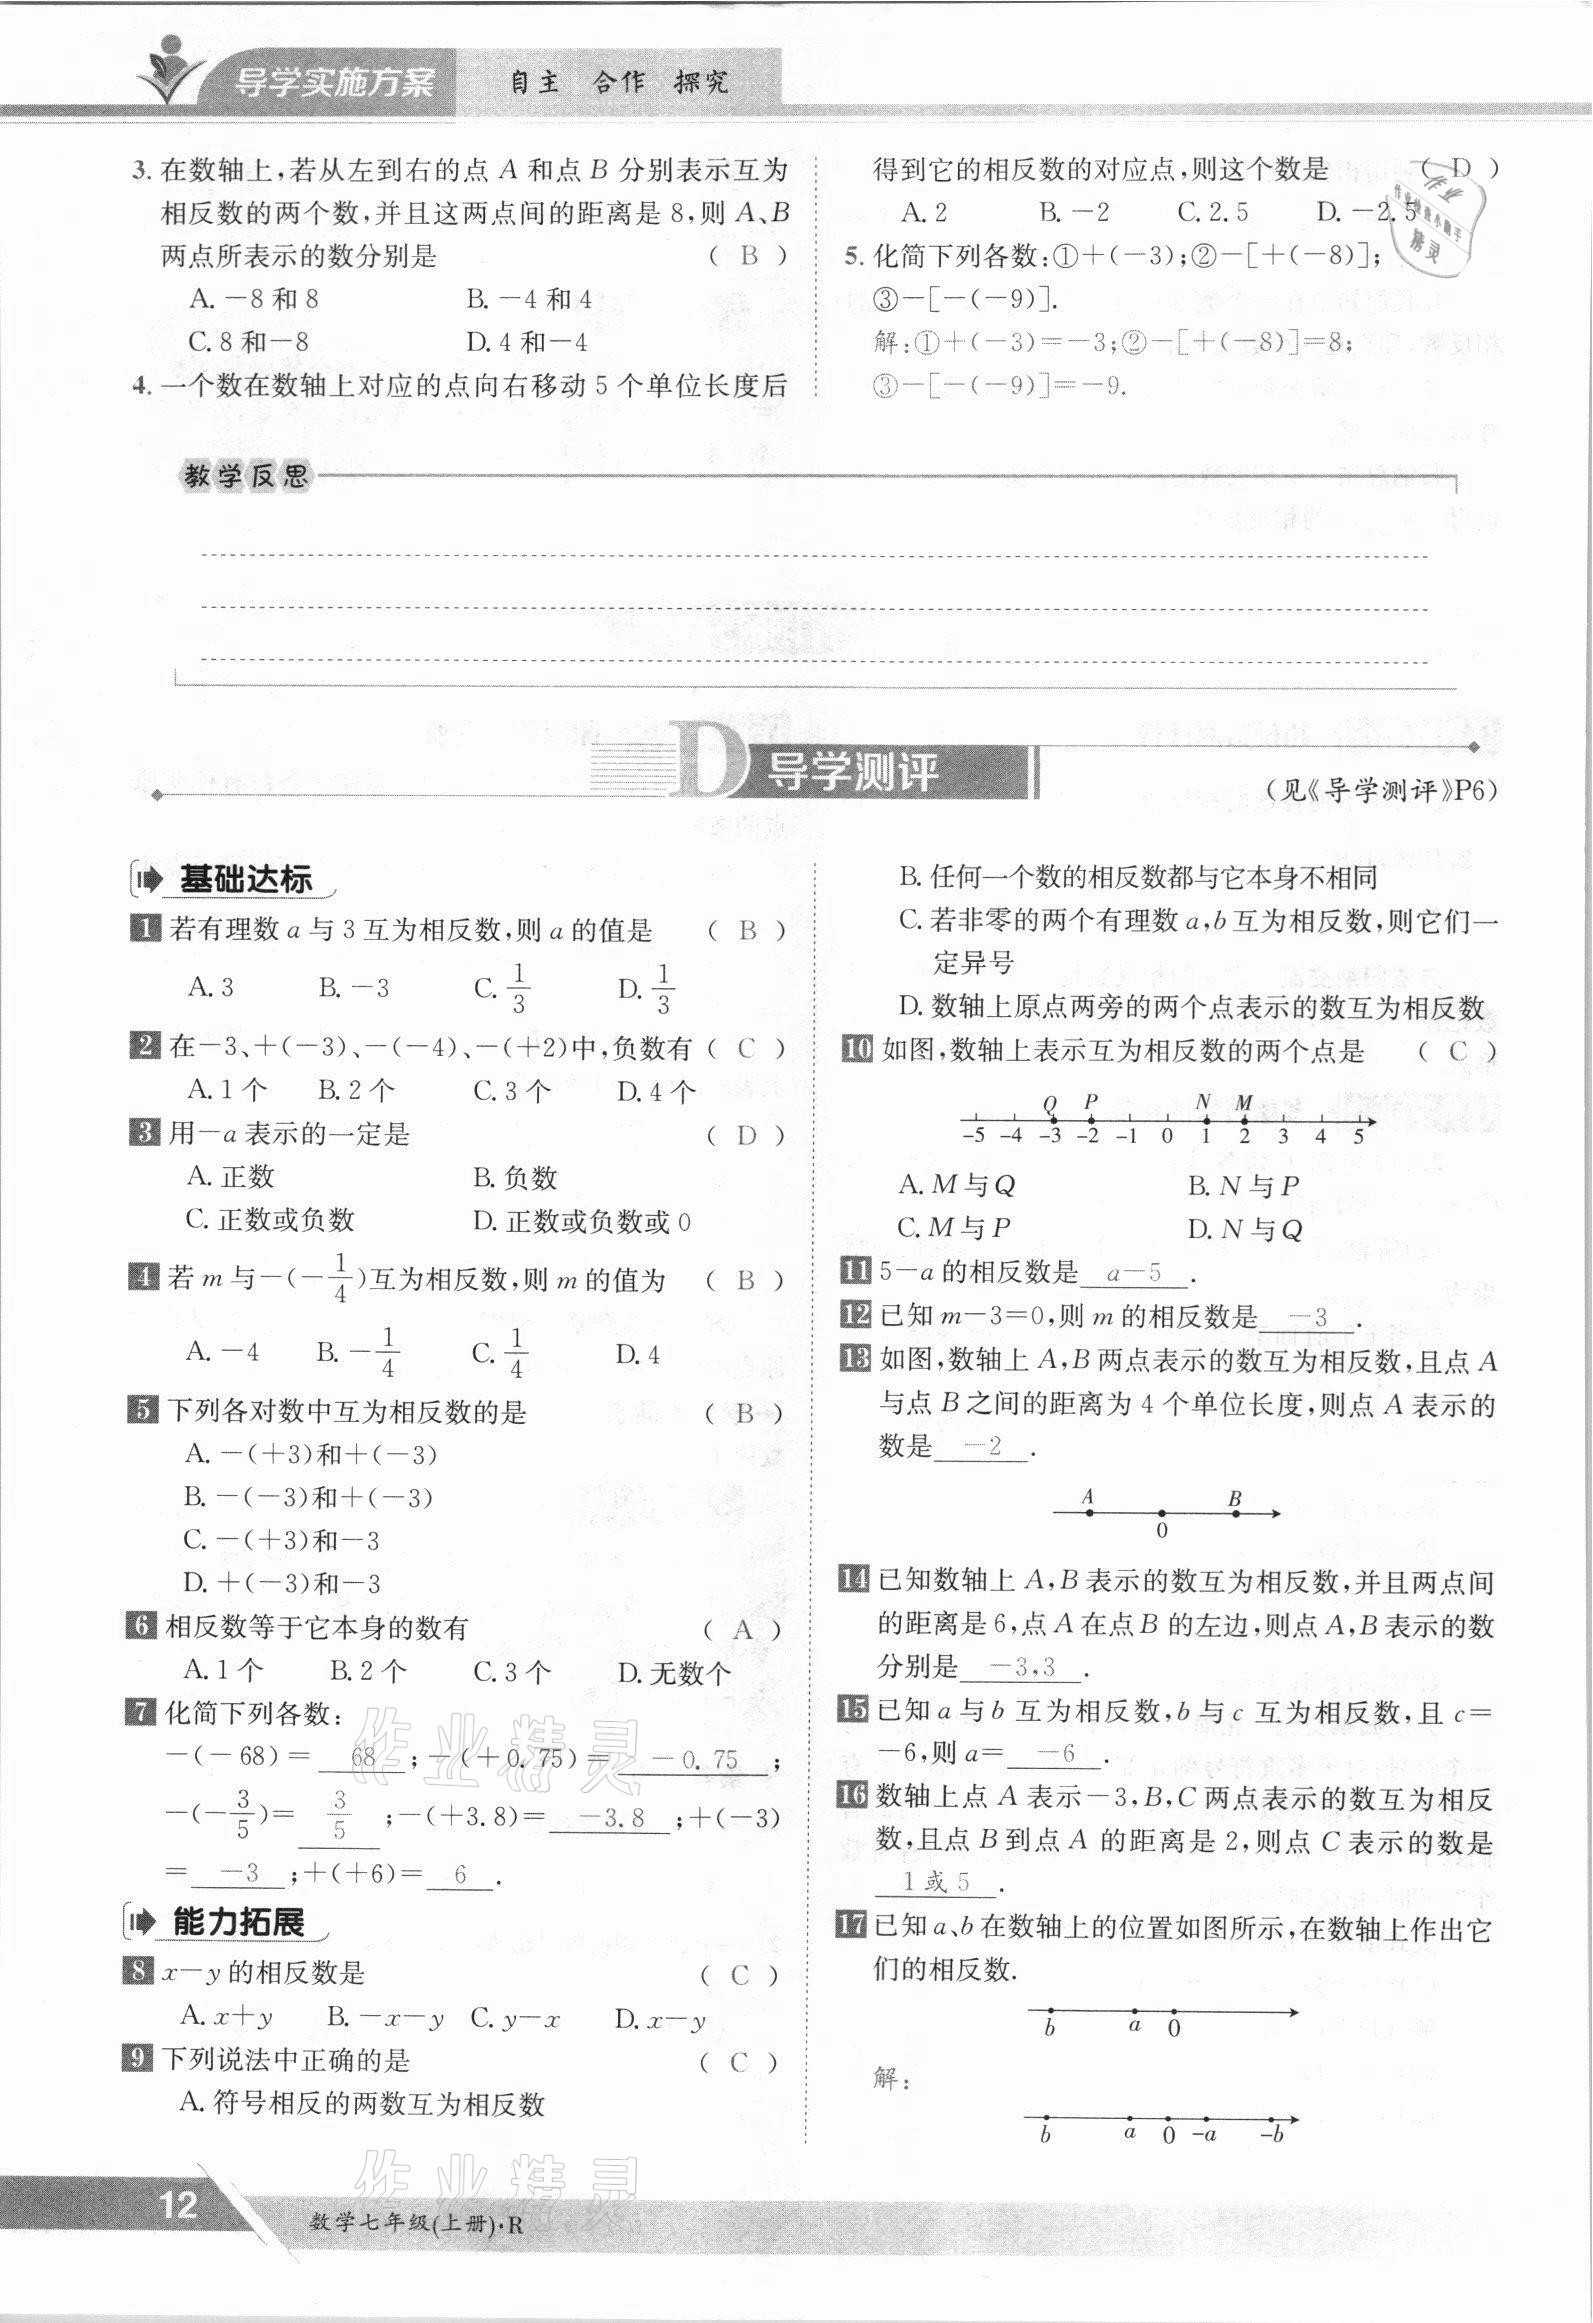 导学实施方案 自主 合作 探究
3. 在数轴上,若从左到右的点 A 和点 B 分别表示互为
相反数的两个数,并且这两点间的距离是 8,则 A、B
两点所表示的数分别是 ( B )
A. －8 和 8 B. －4 和 4
C. 8 和－8 D. 4 和－4
4. 一个数在数轴上对应的点向右移动 5 个单位长度后
得到它的相反数的对应点,则这个数是 ( D )
A. 2 B. －2 C. 2.5 D. －2.5
5. 化简下列各数:①＋(－3);②－[＋(－8)];
③－[－(－9)].
解:①＋(－3)＝－3;②－[＋(－8)]＝8;
③－[－(－9)]＝－9.
教学反思
D 导学测评
(见《导学测评》P6)
基础达标
1 若有理数 a 与 3 互为相反数,则 a 的值是 ( B )
A. 3 B. －3 C. 1/3 D. 1/3
2 在－3、＋(－3)、－(－4)、－(＋2)中,负数有 ( C )
A. 1 个 B. 2 个 C. 3 个 D. 4 个
3 用－a 表示的一定是 ( D )
A. 正数 B. 负数
C. 正数或负数 D. 正数或负数或 0
4 若 m 与－(－1/4)互为相反数,则 m 的值为 ( B )
A. －4 B. －1/4 C. 1/4 D. 4
5 下列各对数中互为相反数的是 ( B )
A. －(＋3)和＋(－3)
B. －(－3)和＋(－3)
C. －(＋3)和－3
D. ＋(－3)和－3
6 相反数等于它本身的数有 ( A )
A. 1 个 B. 2 个 C. 3 个 D. 无数个
7 化简下列各数:
－(－68)＝ 68 ;－(＋0.75)＝ －0.75 ;
－(－3/5)＝ 3/5 ;－(＋3.8)＝ －3.8 ;＋(－3)
＝ －3 ;＋(＋6)＝ 6 .
能力拓展
8 x－y 的相反数是 ( C )
A. x＋y B. －x－y C. y－x D. x－y
9 下列说法中正确的是 ( C )
A. 符号相反的两数互为相反数
B. 任何一个数的相反数都与它本身不相同
C. 若非零的两个有理数 a,b 互为相反数,则它们一
定异号
D. 数轴上原点两旁的两个点表示的数互为相反数
10 如图,数轴上表示互为相反数的两个点是 ( C )
Q P N M
-5 -4 -3 -2 -1 0 1 2 3 4 5
A. M 与 Q B. N 与 P
C. M 与 P D. N 与 Q
11 5－a 的相反数是 a－5 .
12 已知 m－3＝0,则 m 的相反数是 －3 .
13 如图,数轴上 A,B 两点表示的数互为相反数,且点 A
与点 B 之间的距离为 4 个单位长度,则点 A 表示的
数是 －2 .
A B
0
14 已知数轴上 A,B 表示的数互为相反数,并且两点间
的距离是 6,点 A 在点 B 的左边,则点 A,B 表示的数
分别是 －3,3 .
15 已知 a 与 b 互为相反数,b 与 c 互为相反数,且 c＝
－6,则 a＝ －6 .
16 数轴上点 A 表示－3,B,C 两点表示的数互为相反
数,且点 B 到点 A 的距离是 2,则点 C 表示的数是
1 或 5 .
17 已知 a、b 在数轴上的位置如图所示,在数轴上作出它
们的相反数.
b a 0
解:
b a 0 -a -b
作业精灵
作业精灵
12 数学七年级(上册)·R